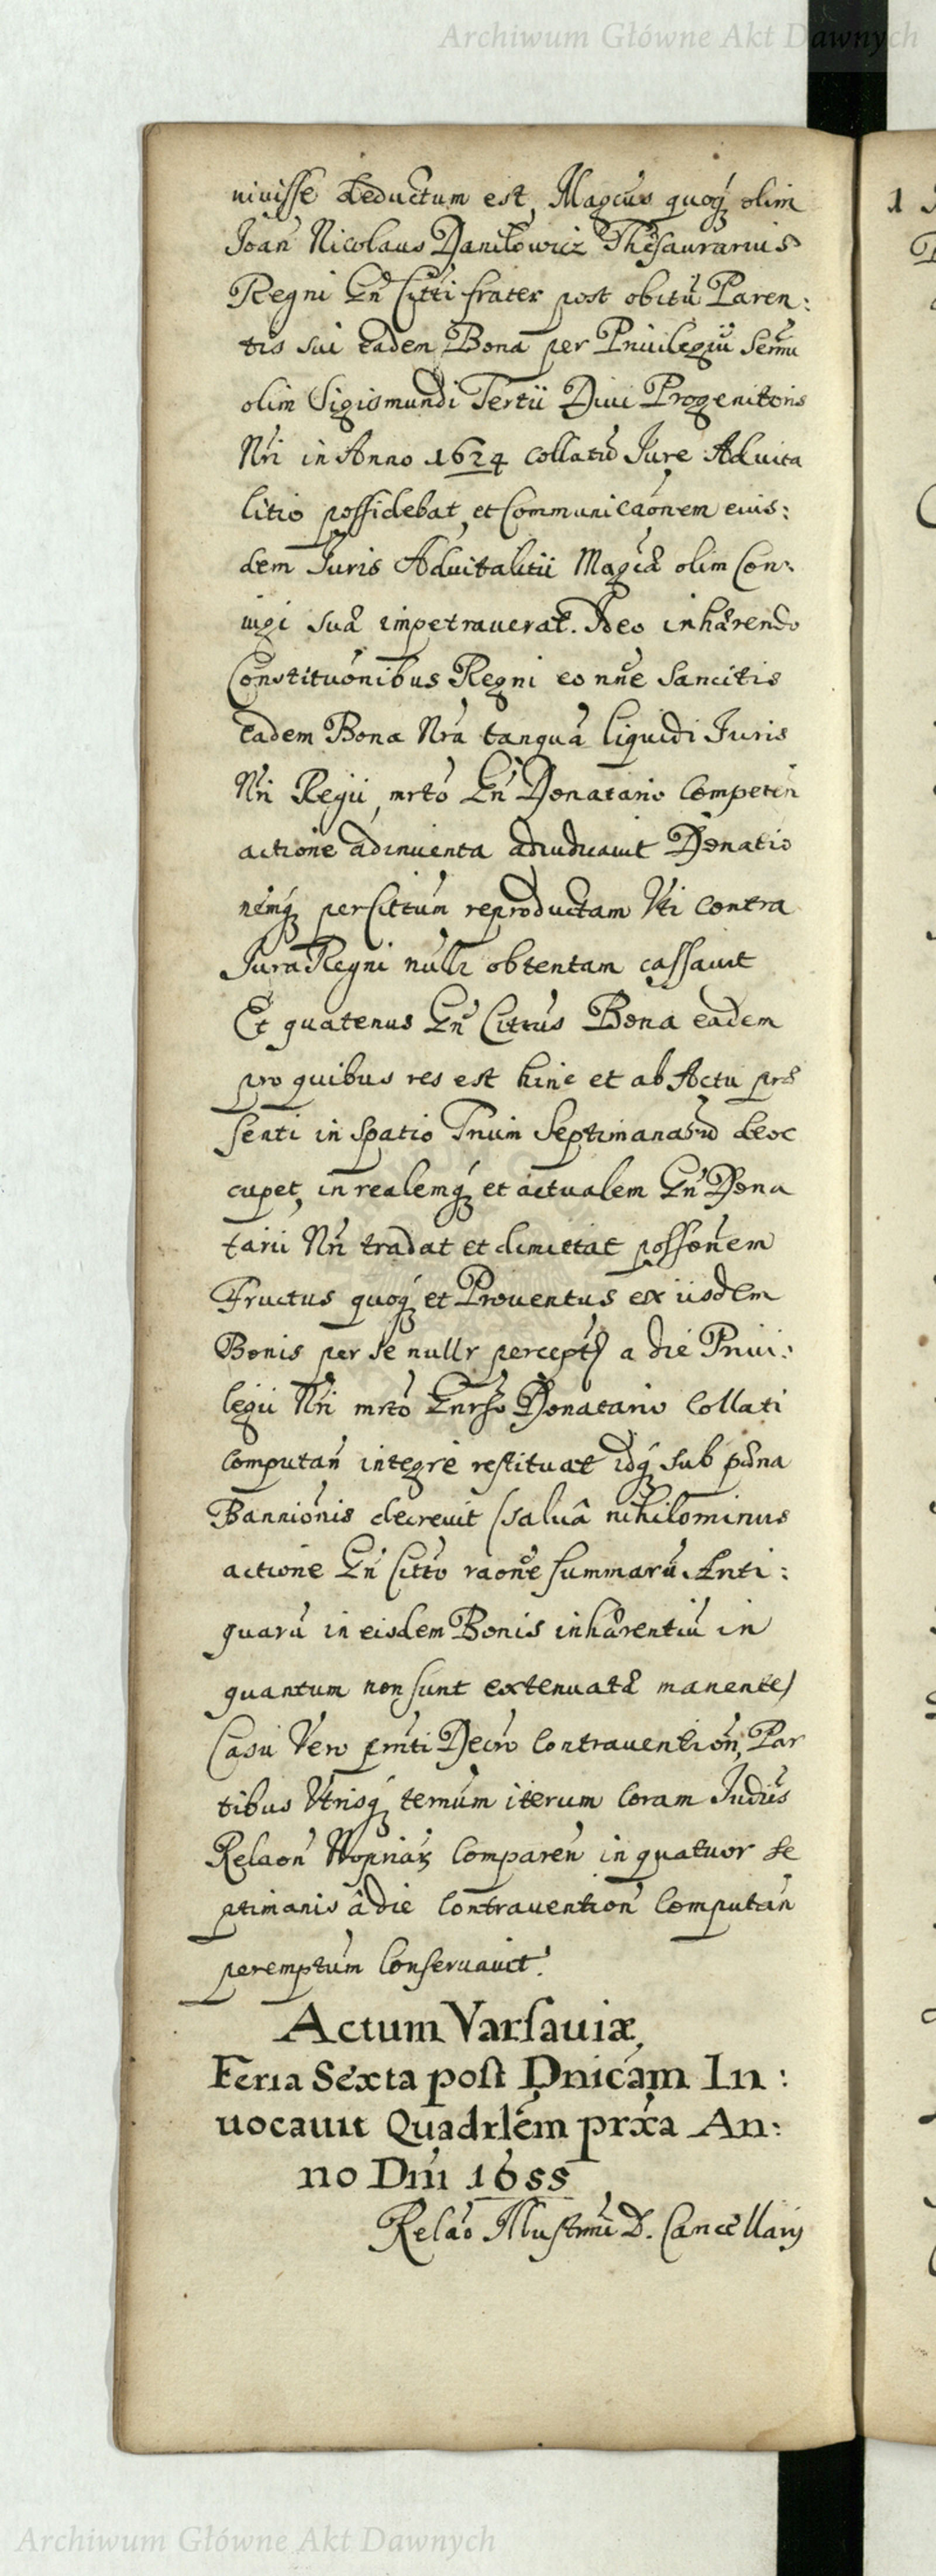 Archiwum Główne Akt Dawnych
nivisse deductum est, Magcus quoq́ olim
Joan Nicolaus Daniłowicz Thesaurarius
Regni Gñ Citti frater post obitũ Paren:
tis sui eadem Bona per Privilegiũ Sermi
olim Sigismundi Tertii Divi Progenitoris
Nri in Anno 1624 collatũ Jure Advita
litio possidebat, et Communicãonem eius:
dem Juris Advitalitii Magcæ olim Con:
iugi suæ impetraverat. Adeo inhærendo
Constituõnibus Regni eo nñe sancitis
eadem Bona Nrã tanquã liquidi Juris
Nri Regii, mrto Gñ Donatario Competeñ
actione adinventa adiudicavit Donatio
nemq́ per Cittum reproductam Uti contra
Jura Regni nullr obtentam cassavit
Et quatenus Gñ Cittus Bona eadem
pro quibus res est hinc et ab Actu præ
senti in spatio Trium Septimanarũ deoc
cupet, in realemq́ et actualem Gñ Dona
tarii Nri tradat et dimittat possõnem
Fructus quoq́ et Proventus ex iisdem
Bonis per se nullr percept) a die Privi:
legii Nri mrto Gnrso Donatario Collati
computañ integre restituat idq́ sub pœna
Bannionis decrevit (salvâ nihilominus
actione Gñ Citto raõne summarũ Anti:
quarũ in eisdem Bonis inhærentiũ in
quantum non sunt extenuatæ manente)
Casu Vero prñti Decro Contraventioñ, Par
tibus Utrisq́ termum iterum Coram Judiis
Relaoñ Nopriar Compareñ in quatuor se
ptimanis â die Contraventioñ Computañ
peremptum Conservavit.
Actum Varsaviæ,
Feria Sexta post Dnicam In:
vocavit Quadrlem prxa An:
no Dni 1655
Relaõ Illustrmi D. Cancellarij
Archiwum Główne Akt Dawnych